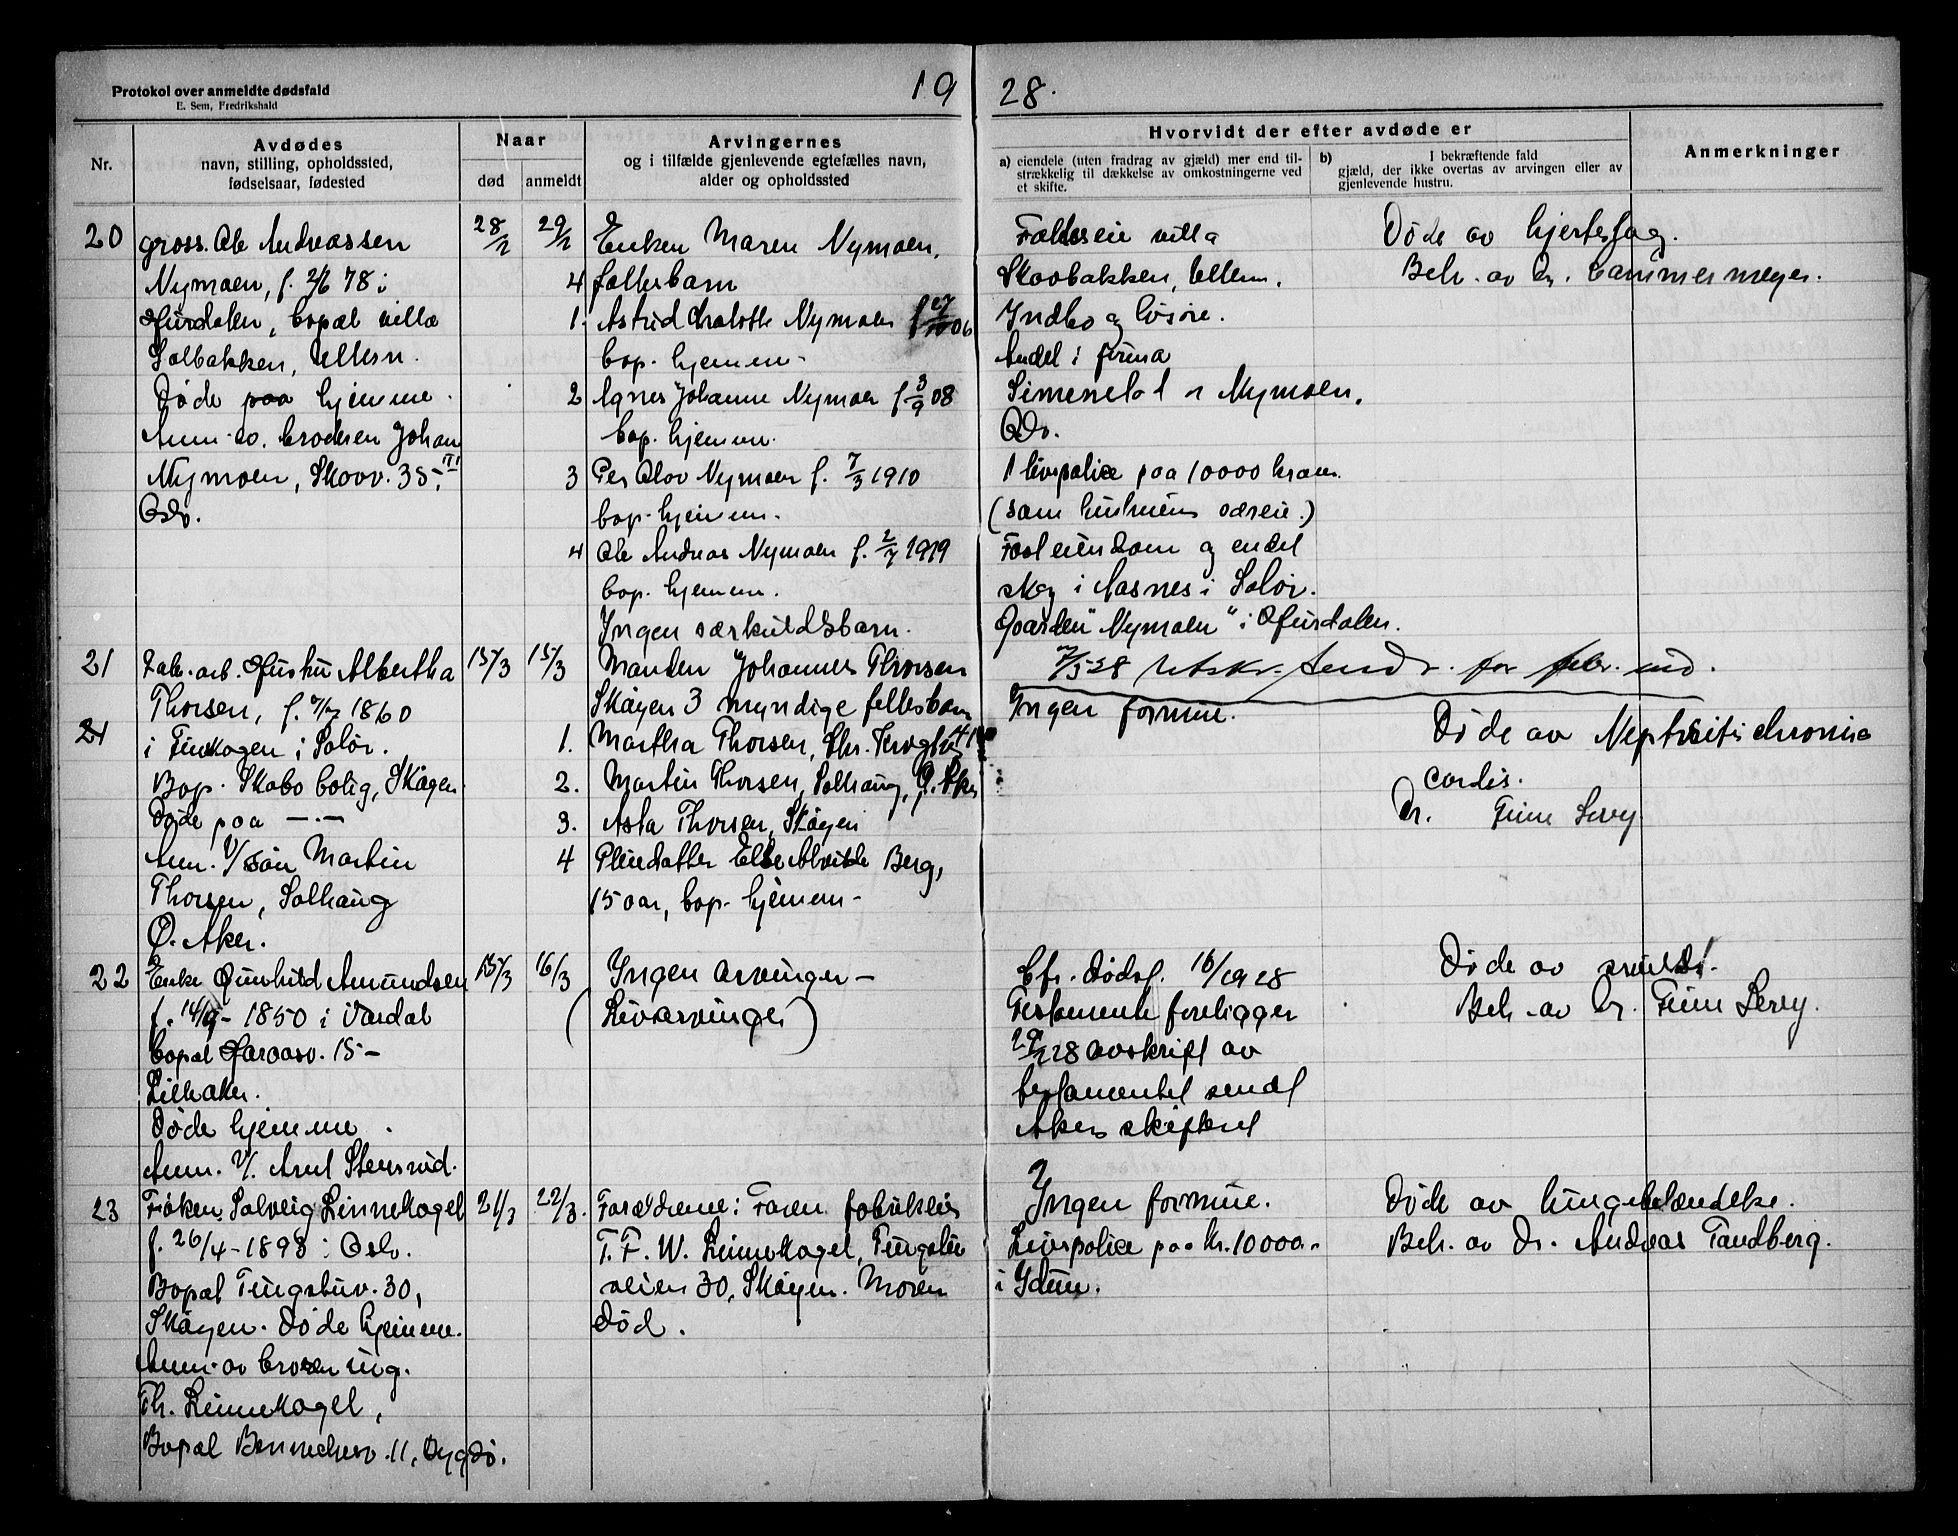 Protokol over anmeldte dødsfald
E. Sem, Fredrikshald
1928.
Nr.
Avdødes
navn, stilling, opholdssted,
fødselsaar, fødested
Naar
død
anmeldt
Arvingernes
og i tilfælde gjenlevende egtefælles navn,
alder og opholdssted
Hvorvidt der efter avdøde er
a) eiendele (uten fradrag av gjæld) mer end til-
strækkelig til dækkelse av omkostningerne ved
et skifte.
b) I bekræftende fald
gjæld, der ikke overtas av arvingen eller av
gjenlevende hustru.
Anmerkninger
20
gross. Ole Andreassen
Nymoen, f. 2/6 78 i
Hurdalen, bopæl villa
Solbakken, Ullern.
Døde paa hjemme.
Anm. av broderen Johan
Nymoen, Skovv. 35, VI
Oslo.
28/2
29/2
Enken Maren Nymoen.
4 fellesbarn
1. Astrid Charlotte Nymoen f 27/10 06
bop. hjemme.
2 Agnes Johanne Nymoen f 3/9 08
bop. hjemme.
3 Per Olav Nymoen f. 7/3 1910
bop. hjemme.
4 Ole Andreas Nymoen f. 2/7 1919
bop. hjemme.
Ingen særkuldsbarn.
Fælleseie villa
Skovbakken, Ullern.
Indbo og løsøre.
Andel i firma
Simenstad & Nymoen,
Oslo.
1 livspolice paa 10000 kroner.
(som hustruens særeie.)
Fast eiendom og endel
skog i Aasnes i Solør.
Gaarden "Nymoen" i Hurdalen.
Døde av hjerteslag.
Beh. av Dr. Cammermeyer.
21
Fabr. arb. Hustru Albertha
Thorsen, f. 1860
21
i Finskogen i Solør.
Bop. Skabo bolig, Skøyen.
Døde paa —"—
Anm. v/ søn Martin
Thorsen, Solhaug
Ø. Aker.
15/3
15/3
Manden Johannes Thorsen
Skøyen 3 myndige fellesbarn
1. Martha Thorsen, Chr. Kroghs
2. Martin Thorsen, Solhaug, Ø. Aker
3. Asta Thorsen, Skøyen
4 Pleiedatter Else Berg,
15 aar, bop. hjemme
28 Utskr. sendt for febr. md.
Ingen formue.
Døde av Neptritis chronica
cordis.
Dr. Finn Levy
22
Enke Gunhild Amundsen
f. 14/9 - 1850 i Vardal
bopæl Harbov. 15 -
Lilleaker.
Døde hjemme.
Anm. v/. Arnt Stensrud.
15/3
16/3
Ingen arvinger -
(Livsarvinger)
Cfr. dødsf. 16/1928
Testamente foreligger
29/ 28 avskrift av
testamentet sendt
Akers skifteret
Døde av
Beh. av Dr. Finn Levy.
23
Frøken Solveig Linnekogel
f. 26/4 - 1898 i Oslo.
Bopæl Tingstuv. 30,
Skøyen. Døde hjemme.
Anm. av broren ing.
Th. Linnekogel,
Bopæl Bennechesv. 11, Bygdø.
21/3
22/3.
Forældrene: Faren fabrikeier
T. F. W. Linnekogel, Tingstu
veien 30, Skøyen. Moren
død.
?
Ingen formue.
Livspolice paa kr. 10000.-
i Idun.
Døde av lungebetændelse.
Beh. av Dr. Andreas Tandberg.